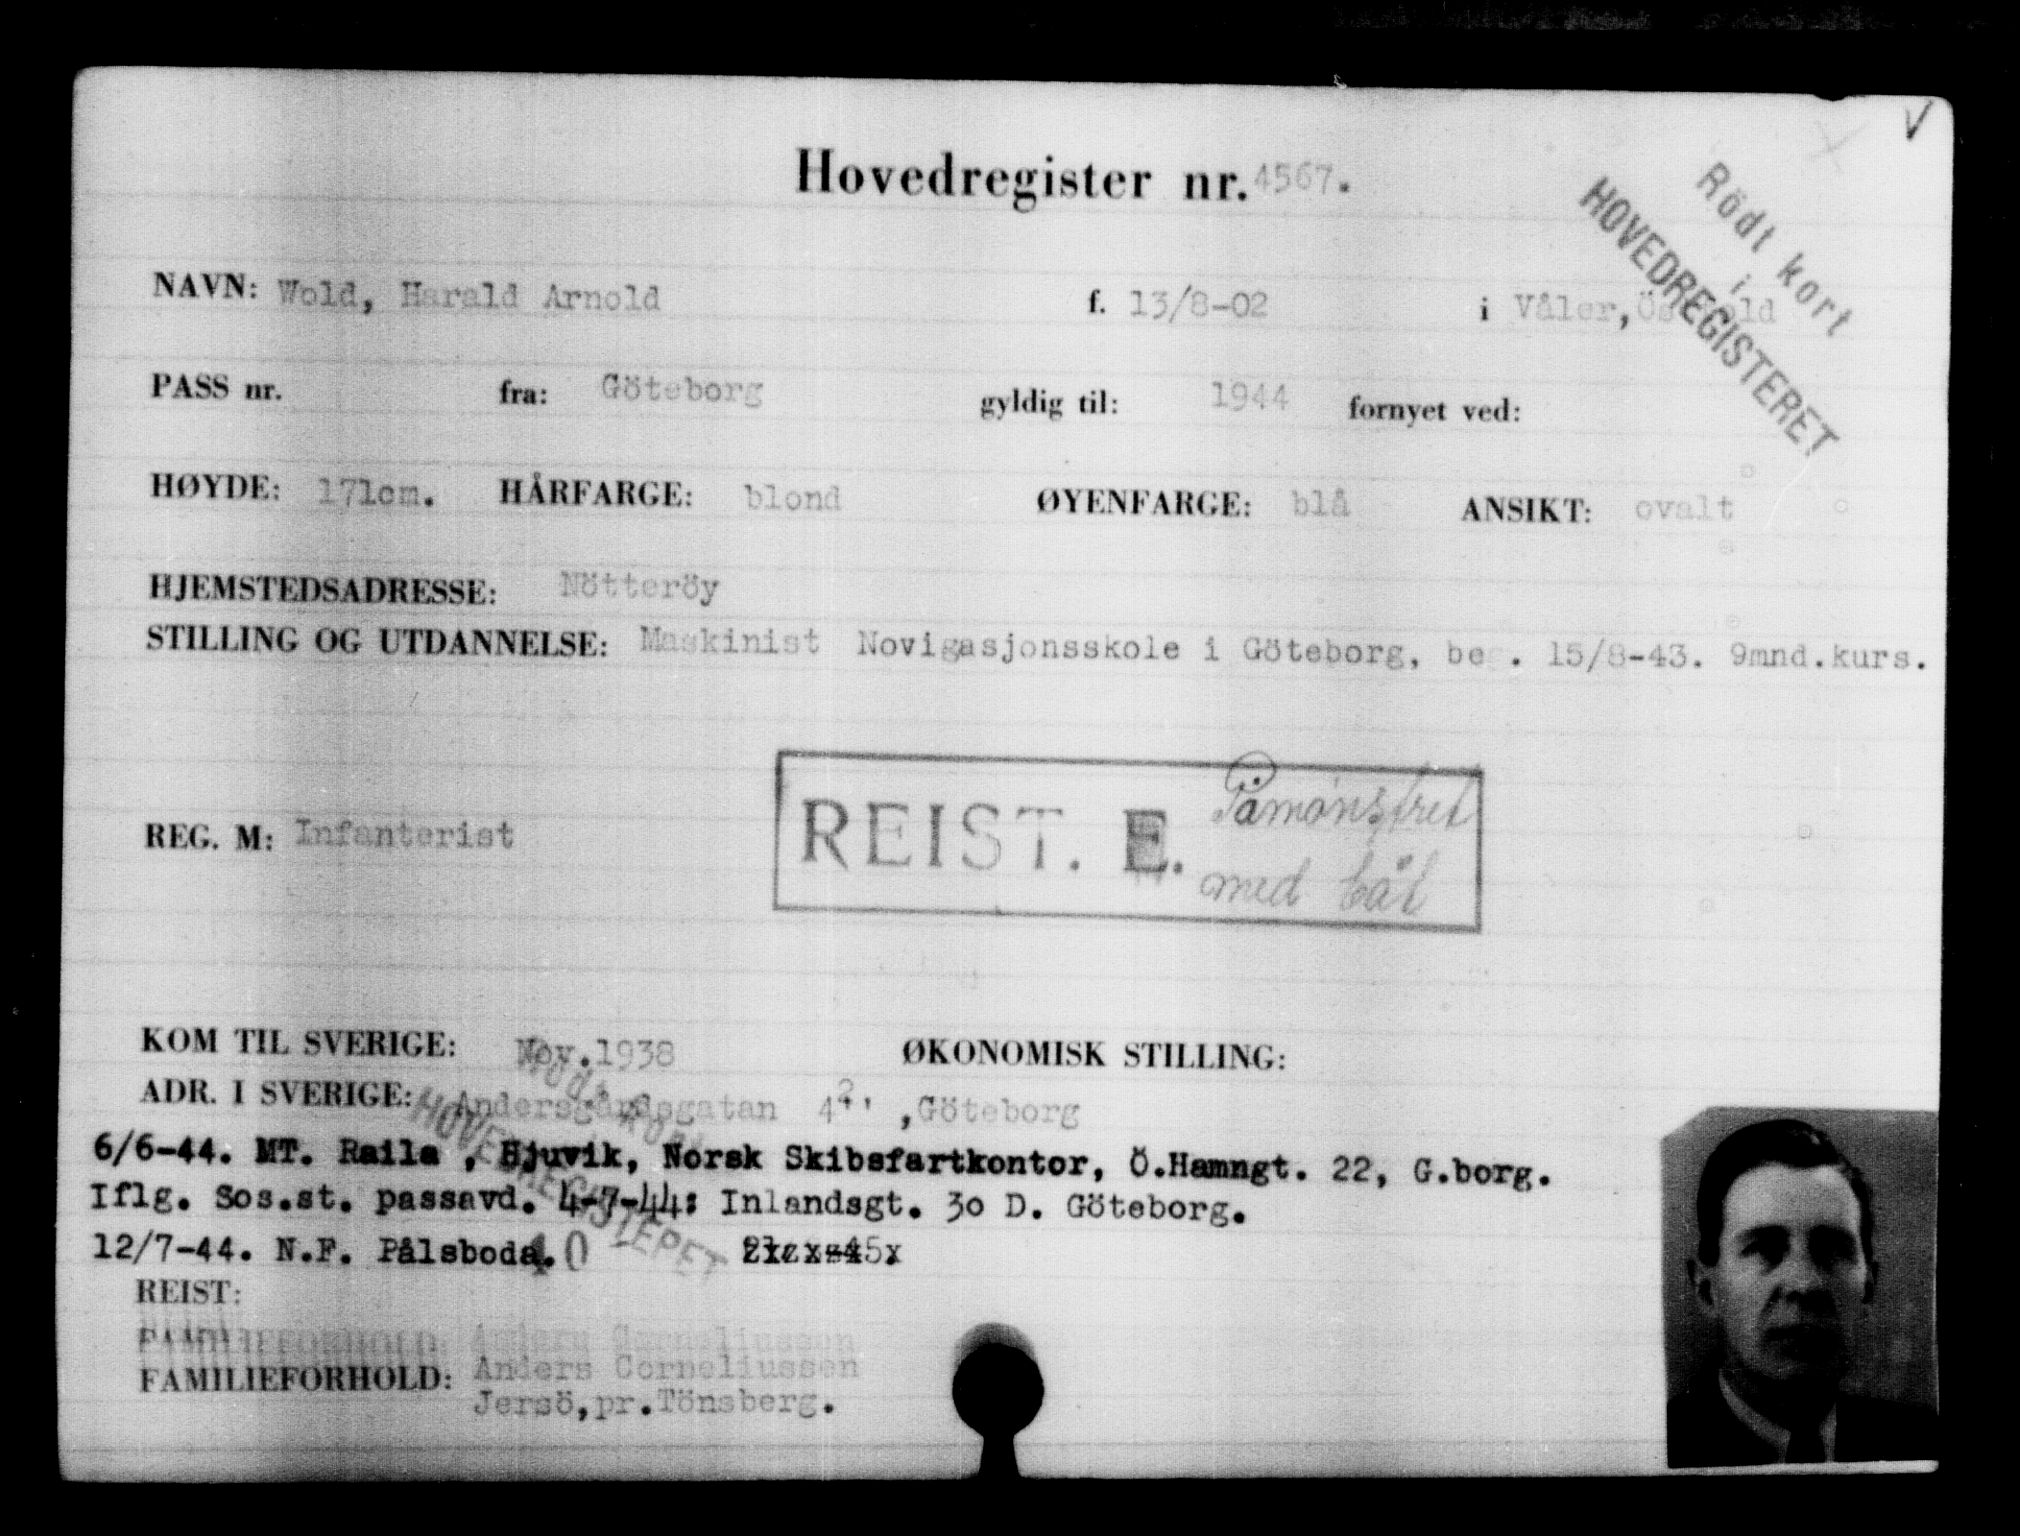 Hovedregister nr. 4567.
Rödt kort
i
HOVEDREGISTERET
NAVN: Wold, Harald Arnold f. 13/8-02 i Våler,
PASS nr. fra: Göteborg gyldig til: 1944 fornyet ved:
HØYDE: 171cm. HÅRFARGE: blond ØYENFARGE: blå ANSIKT: ovalt
HJEMSTEDSADRESSE: Nötteröy
STILLING OG UTDANNELSE: Maskinist Novigasjonsskole i Göteborg, beg. 15/8-43. 9mnd.kurs.
REG. M: Infanterist
REIST. E. Påmønstret
med båt
KOM TIL SVERIGE: Nov.1938 ØKONOMISK STILLING:
ADR. I SVERIGE: Andersgårdsgatan ,Göteborg
HOVEDREGISTERET
6/6-44. MT. Raila , Hjuvik, Norsk Skibsfartkontor, Ö.Hamngt. 22, G.borg.
Iflg. Sos.st. passavd. 4-7-44: Inlandsgt. 3o D. Göteborg.
12/7-44. N.F. Pålsboda.
REIST:
FAMILIEFORHOLD: Anders Corneliussen
FAMILIEFORHOLD: Anders Corneliussen
Jersö,pr.Tönsberg.